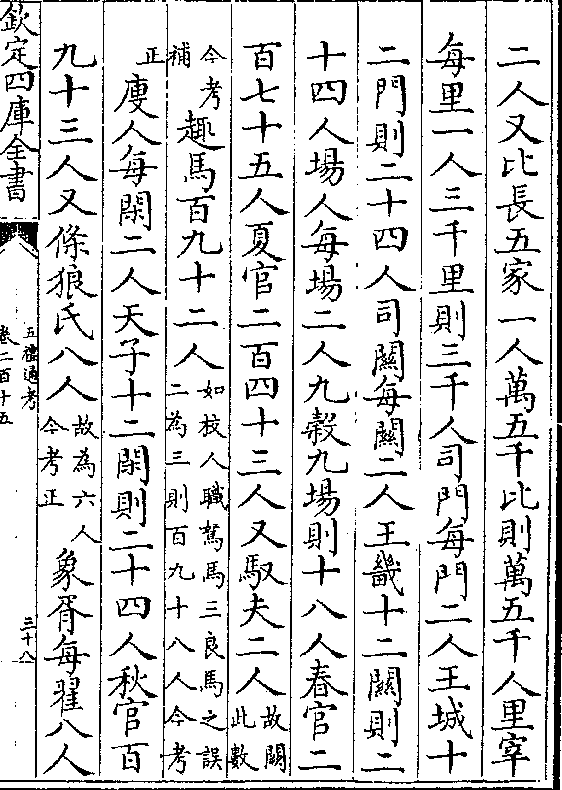 二人又比長五家一人萬五千比則萬五千人里宰
每里一人三千里則三千人司門每門二人王城十
二門則二十四人司關每關二人王畿十二關則二
十四人場人每場二人九穀九場則十八人春官二
百七十五人夏官二百四十三人又馭夫二人故闕此數
今考補趣馬百九十二人如枝人職駑馬三良馬之誤二為三則百九十八人今考
正廋人每閑二人天子十二閑則二十四人秋官百
九十三人又條狼氏八人故為六人今考正象胥每翟八人
欽定四庫全書
五禮通考
卷二百十五
三十八